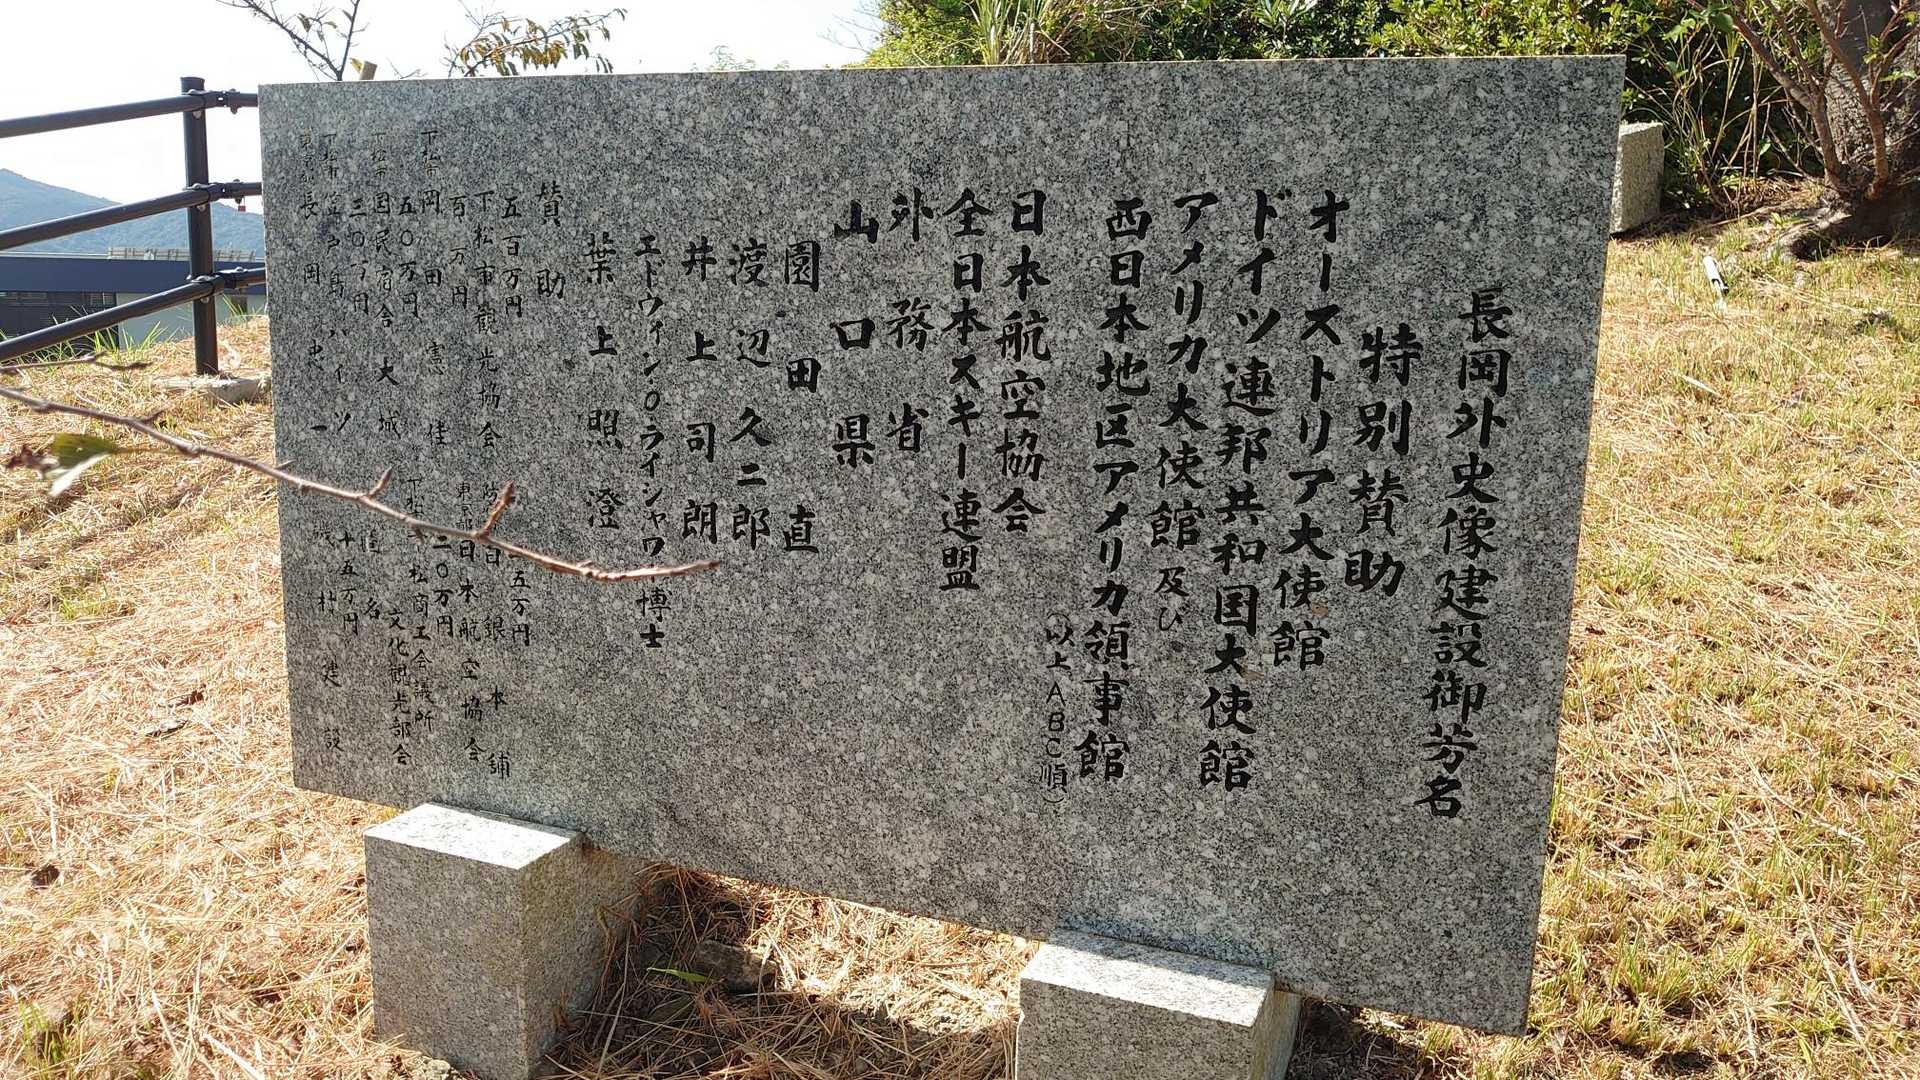 長岡外史像建設御芳名
特別賛助
オーストリア大使館
ドイツ連邦共和国大使館
アメリカ大使館及び
西日本地区アメリカ領事館
(以上ABC順)
日本航空協会
全日本スキー連盟
外務省
山口県
園田直
渡辺久二郎
井上司朗
エドウィン・O・ライシャワー博士
葉上照澄
賛助
五百万円
下松市観光協会
百万円
岡田憲佳
五〇万円
国民宿舎大城
三〇万円
ハイツ
長岡忠一
五万円
本舗
日本航空協会
二〇万円
下松商工会議所
文化観光部会
十五万円
村建設